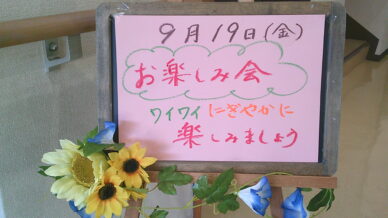 9月19日(金)
お楽しみ会
ワイワイ にぎやかに
楽しみましょう